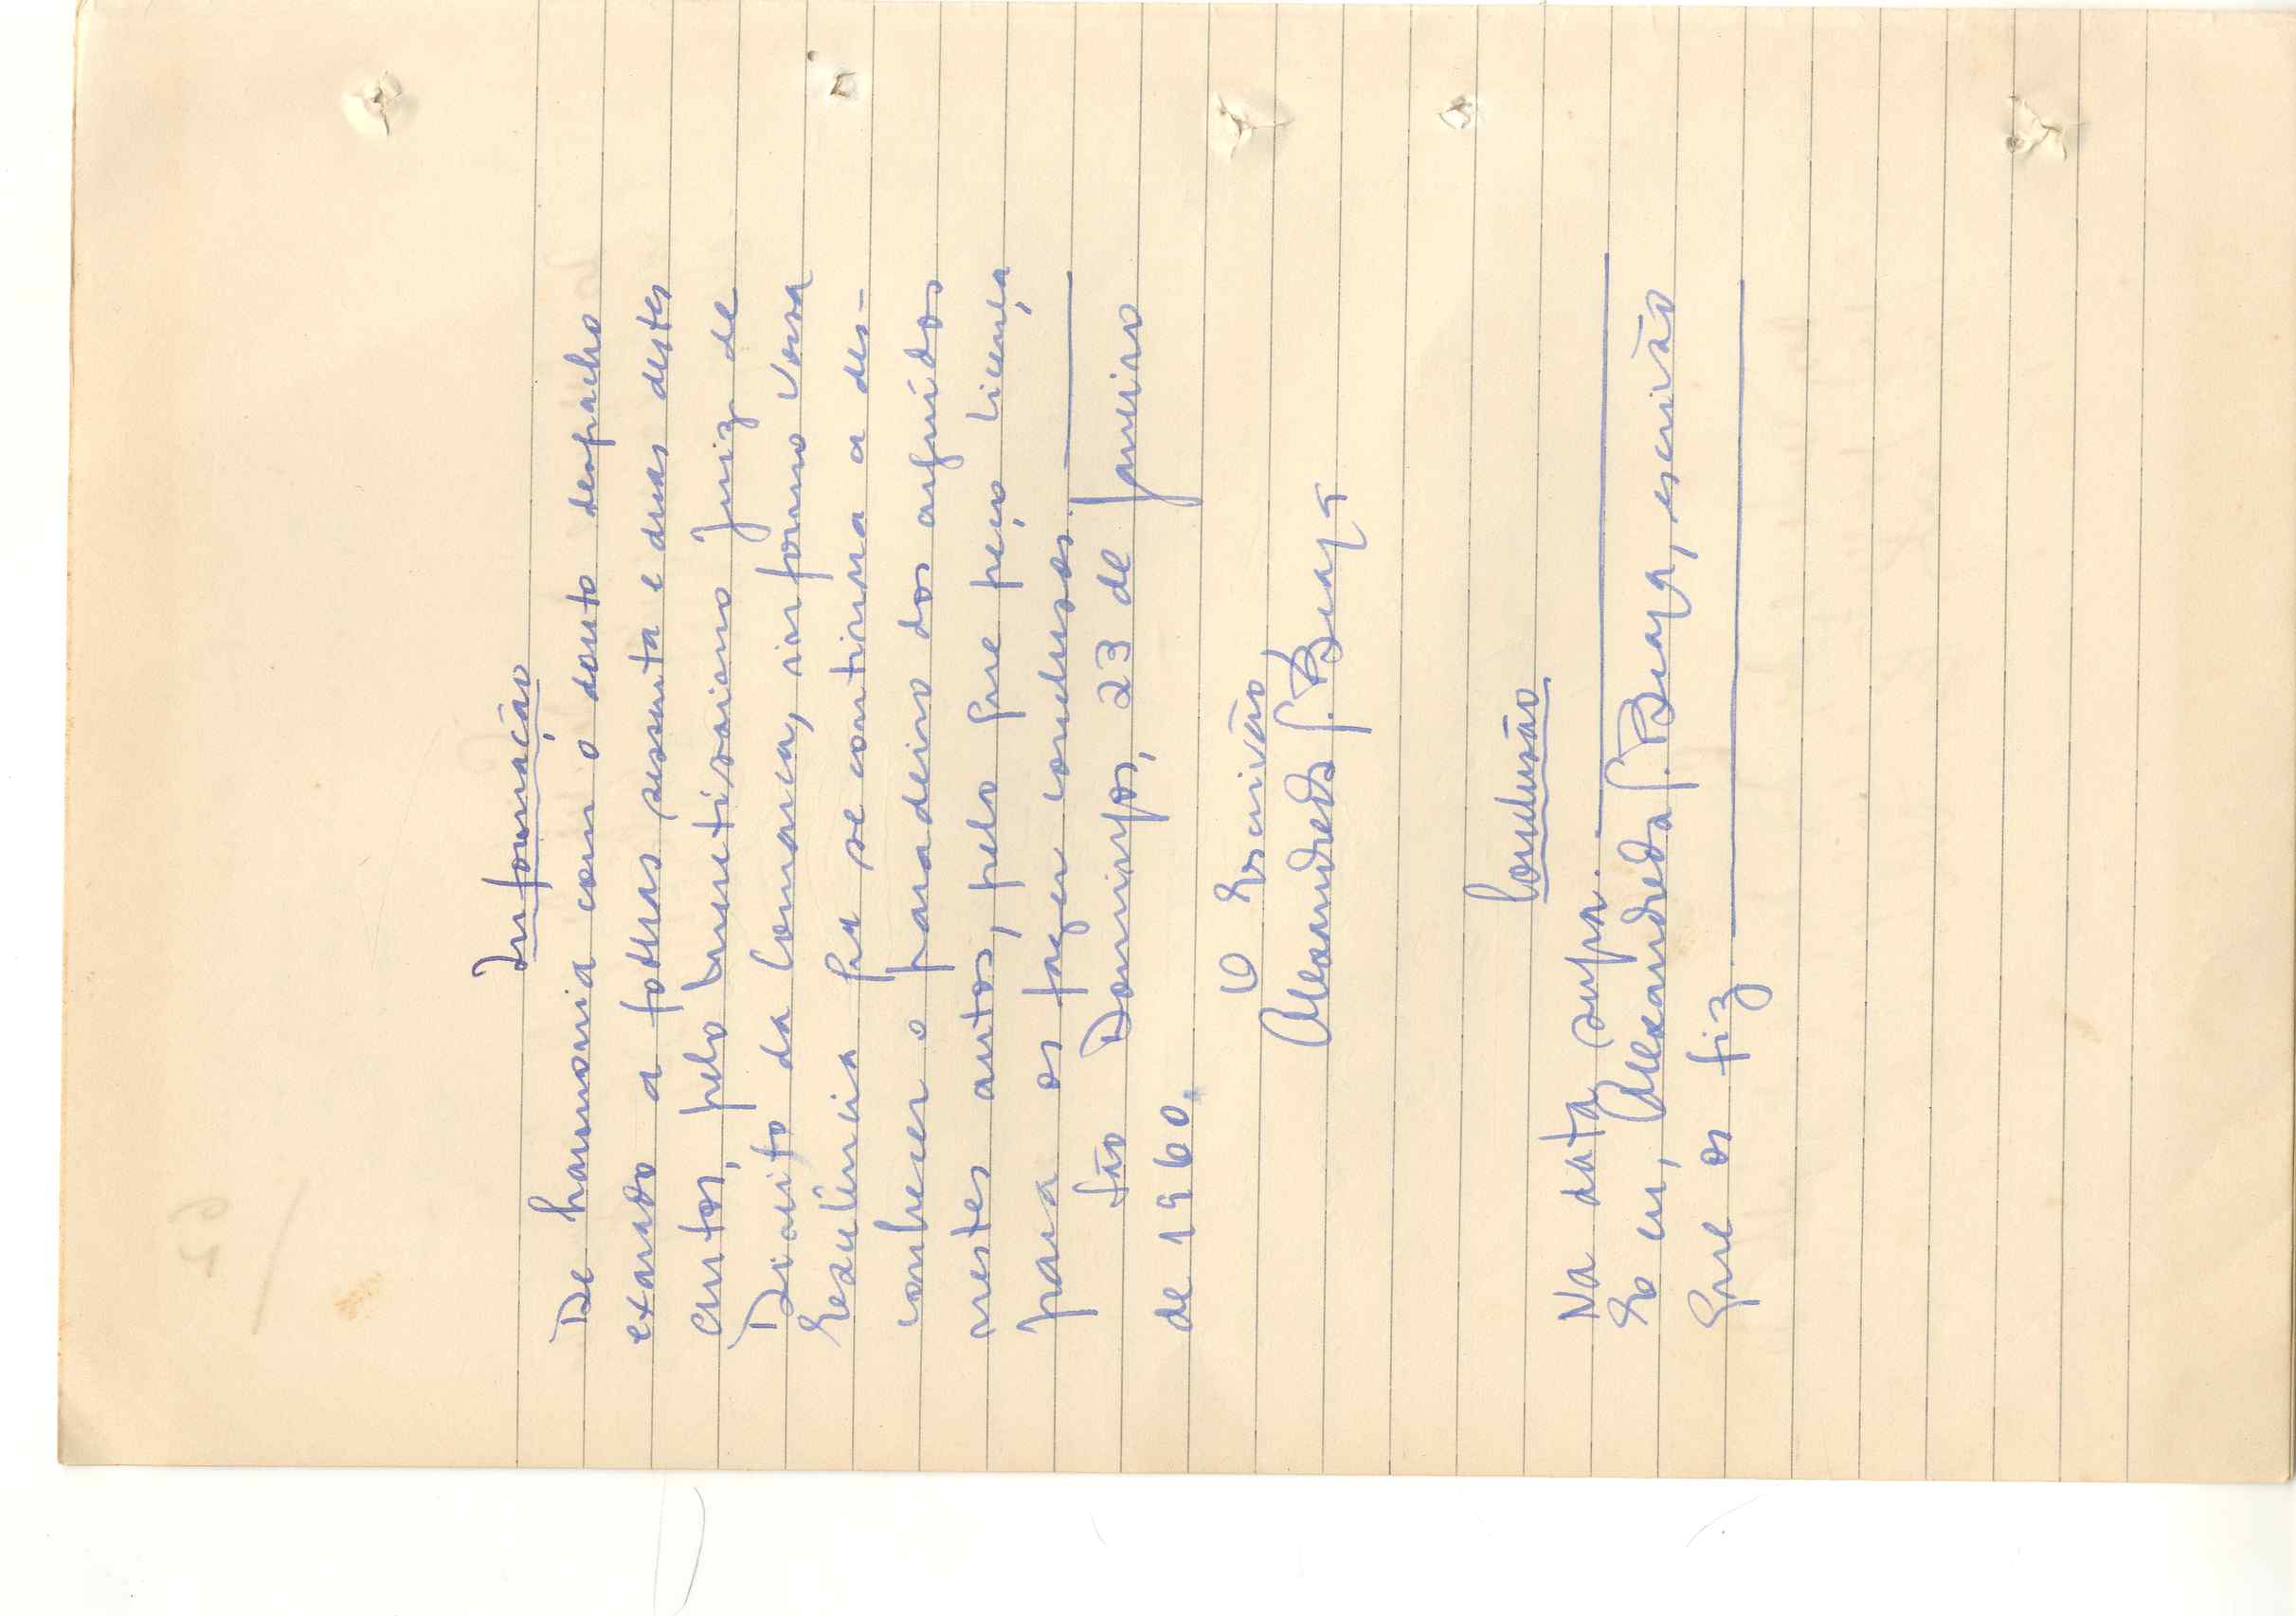 Informação
De harmonia com o douto despacho
exarado a folhas sessenta e duas destes
autos, pelo meretíssimo Juiz de
Direito da Comarca, informo Vossa
Excelência que se continua a des-
conhecer o paradeiro dos arguídos
nestes autos, pelo que peço licença
para os fazer conclusos.
São Domingos, 23 de Janeiro
de 1960.
O Escrivão,
Alexandre da S. Braga
Conclusão
Na data supra.
E eu, Alexandre da S. Braga, escrivão
que os fiz